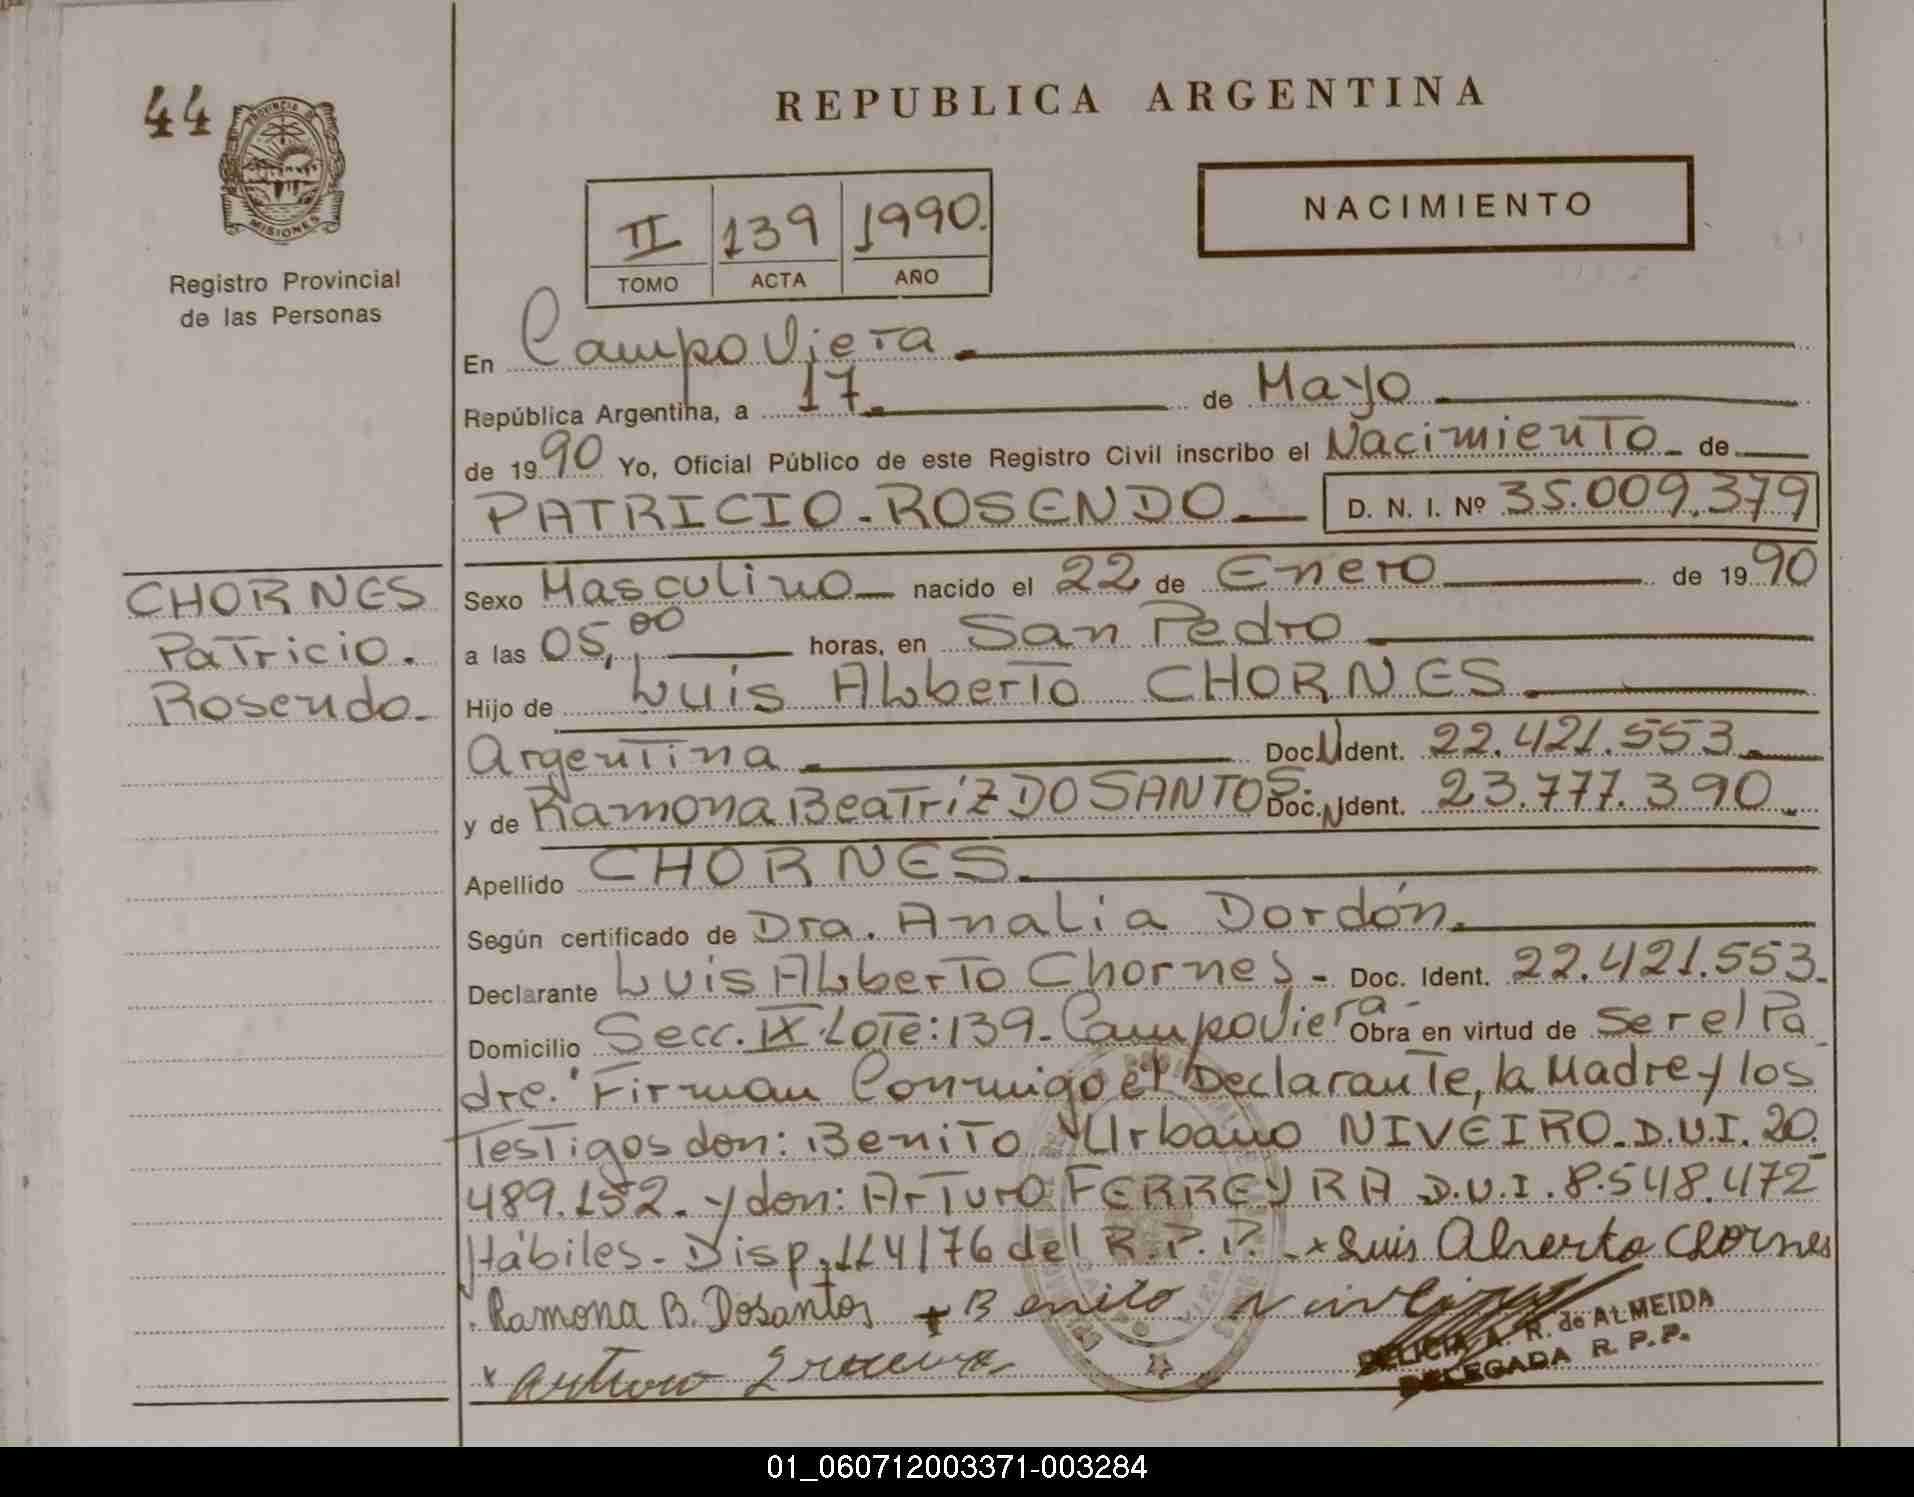 44
PROVINCIA DE
MISIONES
Registro Provincial
de las Personas
REPUBLICA ARGENTINA
II 139 1990.
TOMO ACTA AÑO
NACIMIENTO
En Campo Viera
República Argentina, a 17 de Mayo
de 1990 Yo, Oficial Público de este Registro Civil inscribo el Nacimiento de
PATRICIO ROSENDO D. N. I. Nº 35.009.379
CHORNES
Patricio.
Rosendo
Sexo Masculino nacido el 22 de Enero de 1990
a las 05,00 horas, en San Pedro
Hijo de Luis Alberto CHORNES
Argentina Doc. N Ident. 22.421.553
y de Ramona Beatríz DO SANTOS. Doc. N Ident. 23.777.390
Apellido CHORNES
Según certificado de Dra. Analia Dordón.
Declarante Luis Alberto Chornes - Doc. Ident. 22.421.553.
Domicilio Secc. IX. Lote: 139 - Campo Viera - Obra en virtud de Ser el Pa
dre. Firman Conmigo el Declarante, la Madre y los
Testigos don: Benito Urbano NIVEIRO. D.N.I. 20.
489.152. y don: Arturo FERREYRA D.N.I. 8.548.472
Hábiles - Disp. 114/76 del R.P.P. - x Luis Alberto Chornes
Ramona B. Dosantos + Benito
x Arturo
DELICIA A. R. de ALMEIDA
DELEGADA R. P. P.
01_060712003371-003284